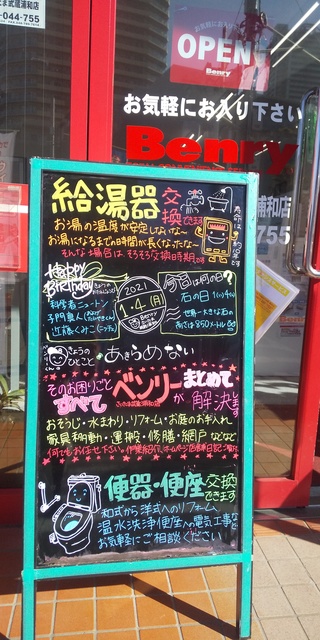 たま武蔵浦和店
-044-755
お気軽にお入り下さい
OPEN
Benry
お気軽にお入り下さい
Benry
浦和店
755
給湯器交換できます
寿命は約10年です
お湯の温度が安定しないな〜
お湯になるまでの時間が長くなったな〜
そんな場合はそろそろ交換時期です
Happy Birthday
科学者ニュートン
子門真人
近藤くみこ
2021
1・4(月)
今日は何の日?
石の日
世界一大きな石の
高さは850メートル
きょうの
ひとこと
あきらめない
そのお困りごと
すべて
ベンリーがまとめて解決します
おそうじ・水まわり・リフォーム・お庭のお手入れ
家具移動・運搬・修膳・網戸などなど
便器・便座交換できます
和式から洋式へのリフォーム
温水洗浄便座への電気工事など
お気軽にご相談ください